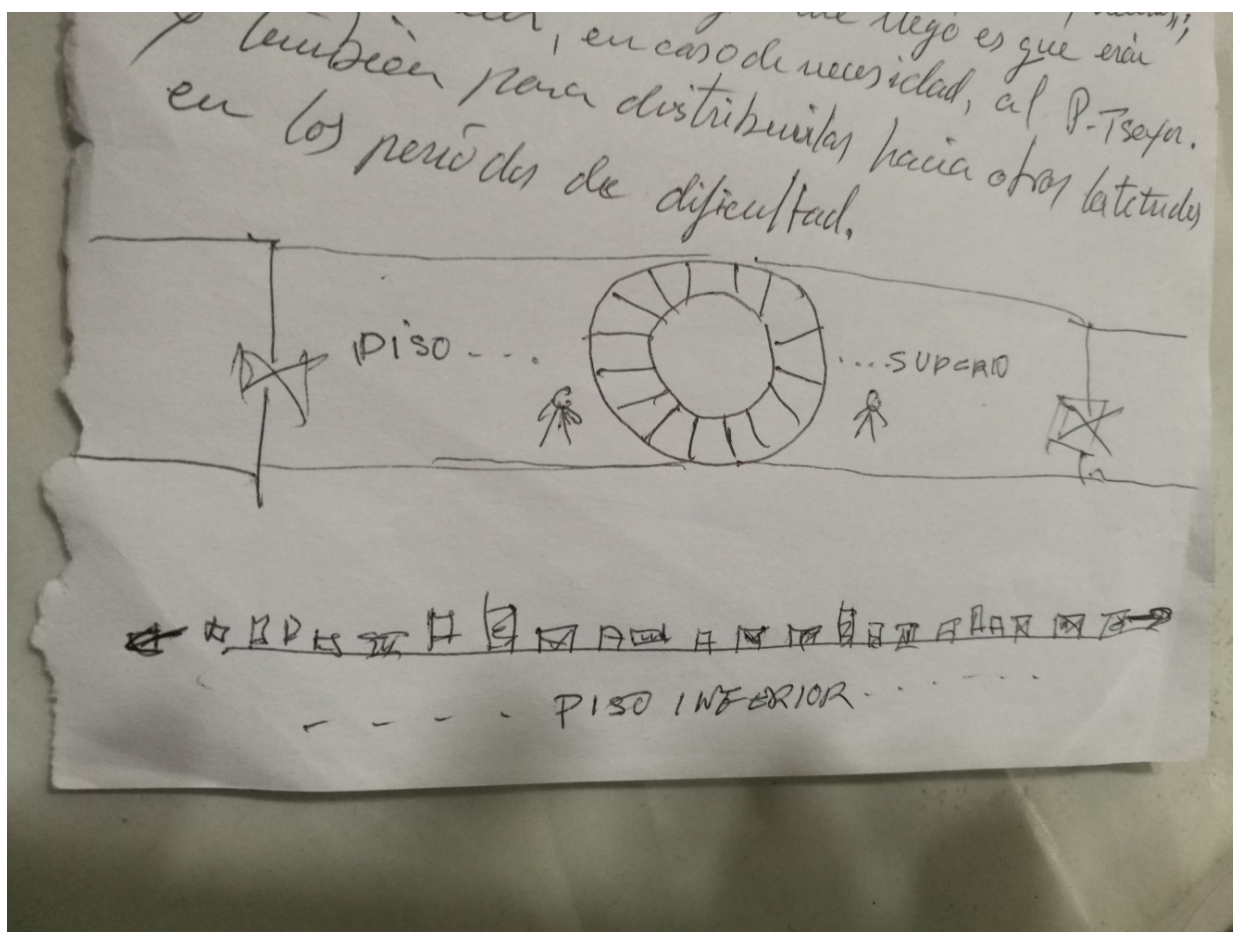 llegó es que erán
y también, en caso de necesidad, al P-Tseyor.
en los para distribuirlas hacia otras latitudes
períodos de dificultad.
PISO .... .... SUPERIO
PISO INFERIOR